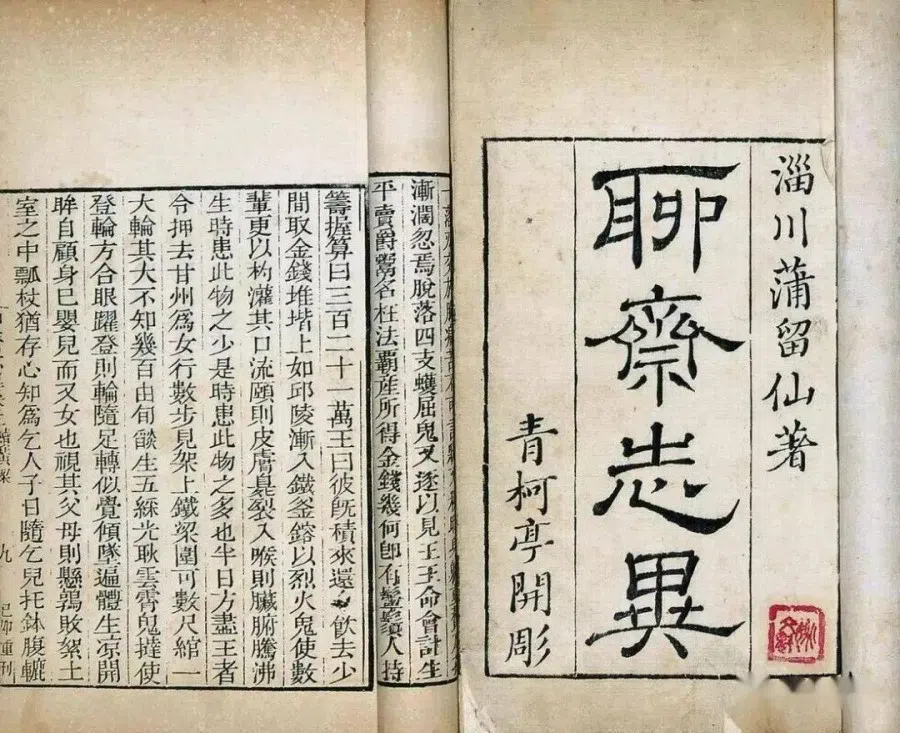 淄川蒲留仙著
聊齋志異
青柯亭開彫
漸濶忽焉脫落四支蠖屈鬼又逐以見王王命會計生
平賣爵鬻名枉法霸產所得金錢幾何卽有鬚人持
籌握算曰三百二十一萬王曰彼旣積來還飲去少
間取金錢堆堦上如邱陵漸入鐵釜鎔以烈火鬼使數
輩更以杓灌其口流頤則皮膚臭裂入喉則臟腑騰沸
生時患此物之少是時患此物之多也半日方盡王者
令押去甘州爲女行數步見架上鐵梁圍可數尺綰一
大輪其大不知幾百由旬燄生五綵光耿雲霄鬼撻使
登輪方合眼躍登則輪隨足轉似覺傾墜遍體生凉開
眸自顧身已嬰兒而又女也視其父母則懸鶉敗絮土
室之中瓢杖猶存心知爲乞人子日隨乞兒托鉢腹轆
九
重刊